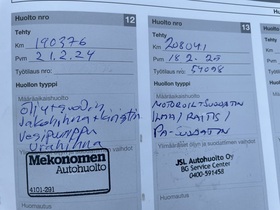 Huolto nro 12
Tehty
Km 190376
Pvm 21.2.24
Työtilaus nro:
Huollon tyyppi
Määräaikaishuolto
Öljyt+suod.
Jakohihna+kiristin
Vesipumppu
Urahihna
Mekonomen
Autohuolto
4101-291
Huolto nro 13
Tehty
Km 208041
Pvm 18.2.25
Työtilaus nro: 54098
Huollon tyyppi
Määräaikaishuolto
öljyn ja suodattimen vaihdot
JSL Autohuolto Oy
BG Service Center
0400-591458